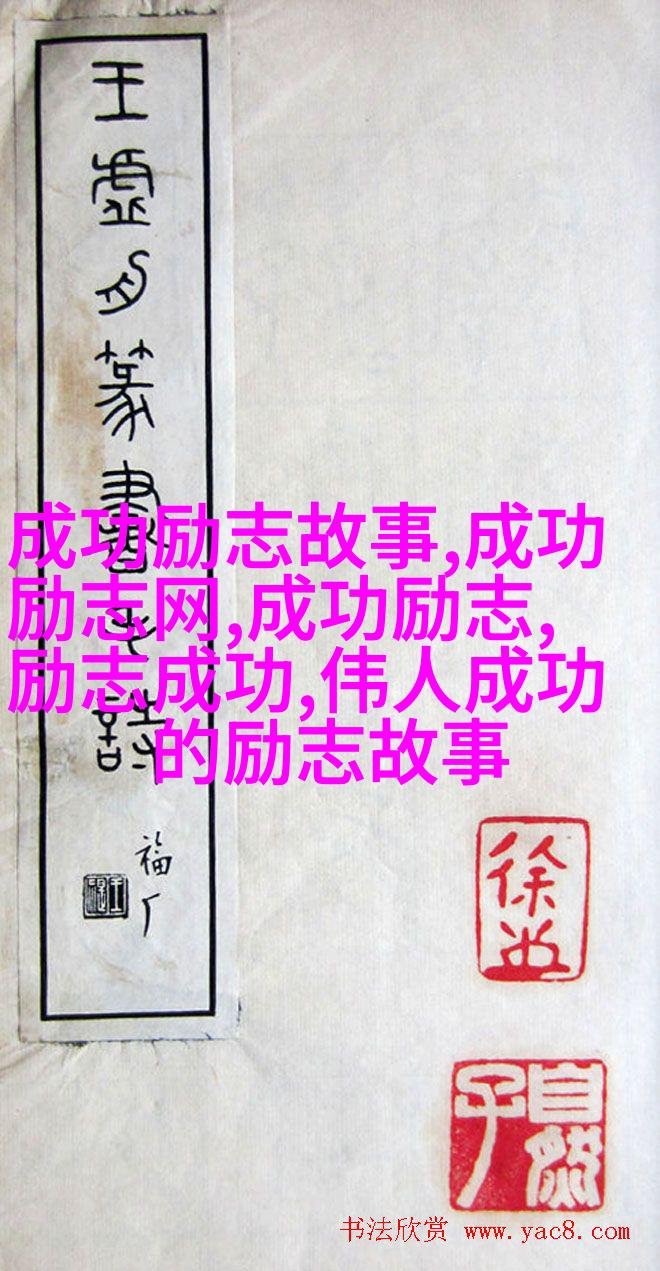 王虛舟篆書
詩
福厂
成功励志故事,成功
励志网,成功励志,
励志成功,伟人成功
的励志故事
徐
自然子
书法欣赏 www.yac8.com